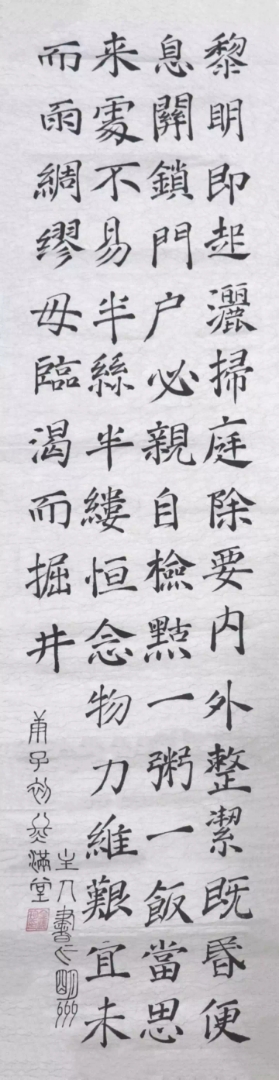 黎明即起灑掃庭除要内外整潔既昏便
息關鎖門户必親自檢點一粥一飯當思
来處不易半絲半縷恒念物力維艱宜未
而雨綢繆毋臨渴而掘井
庚子初滿堂
主人書於明州